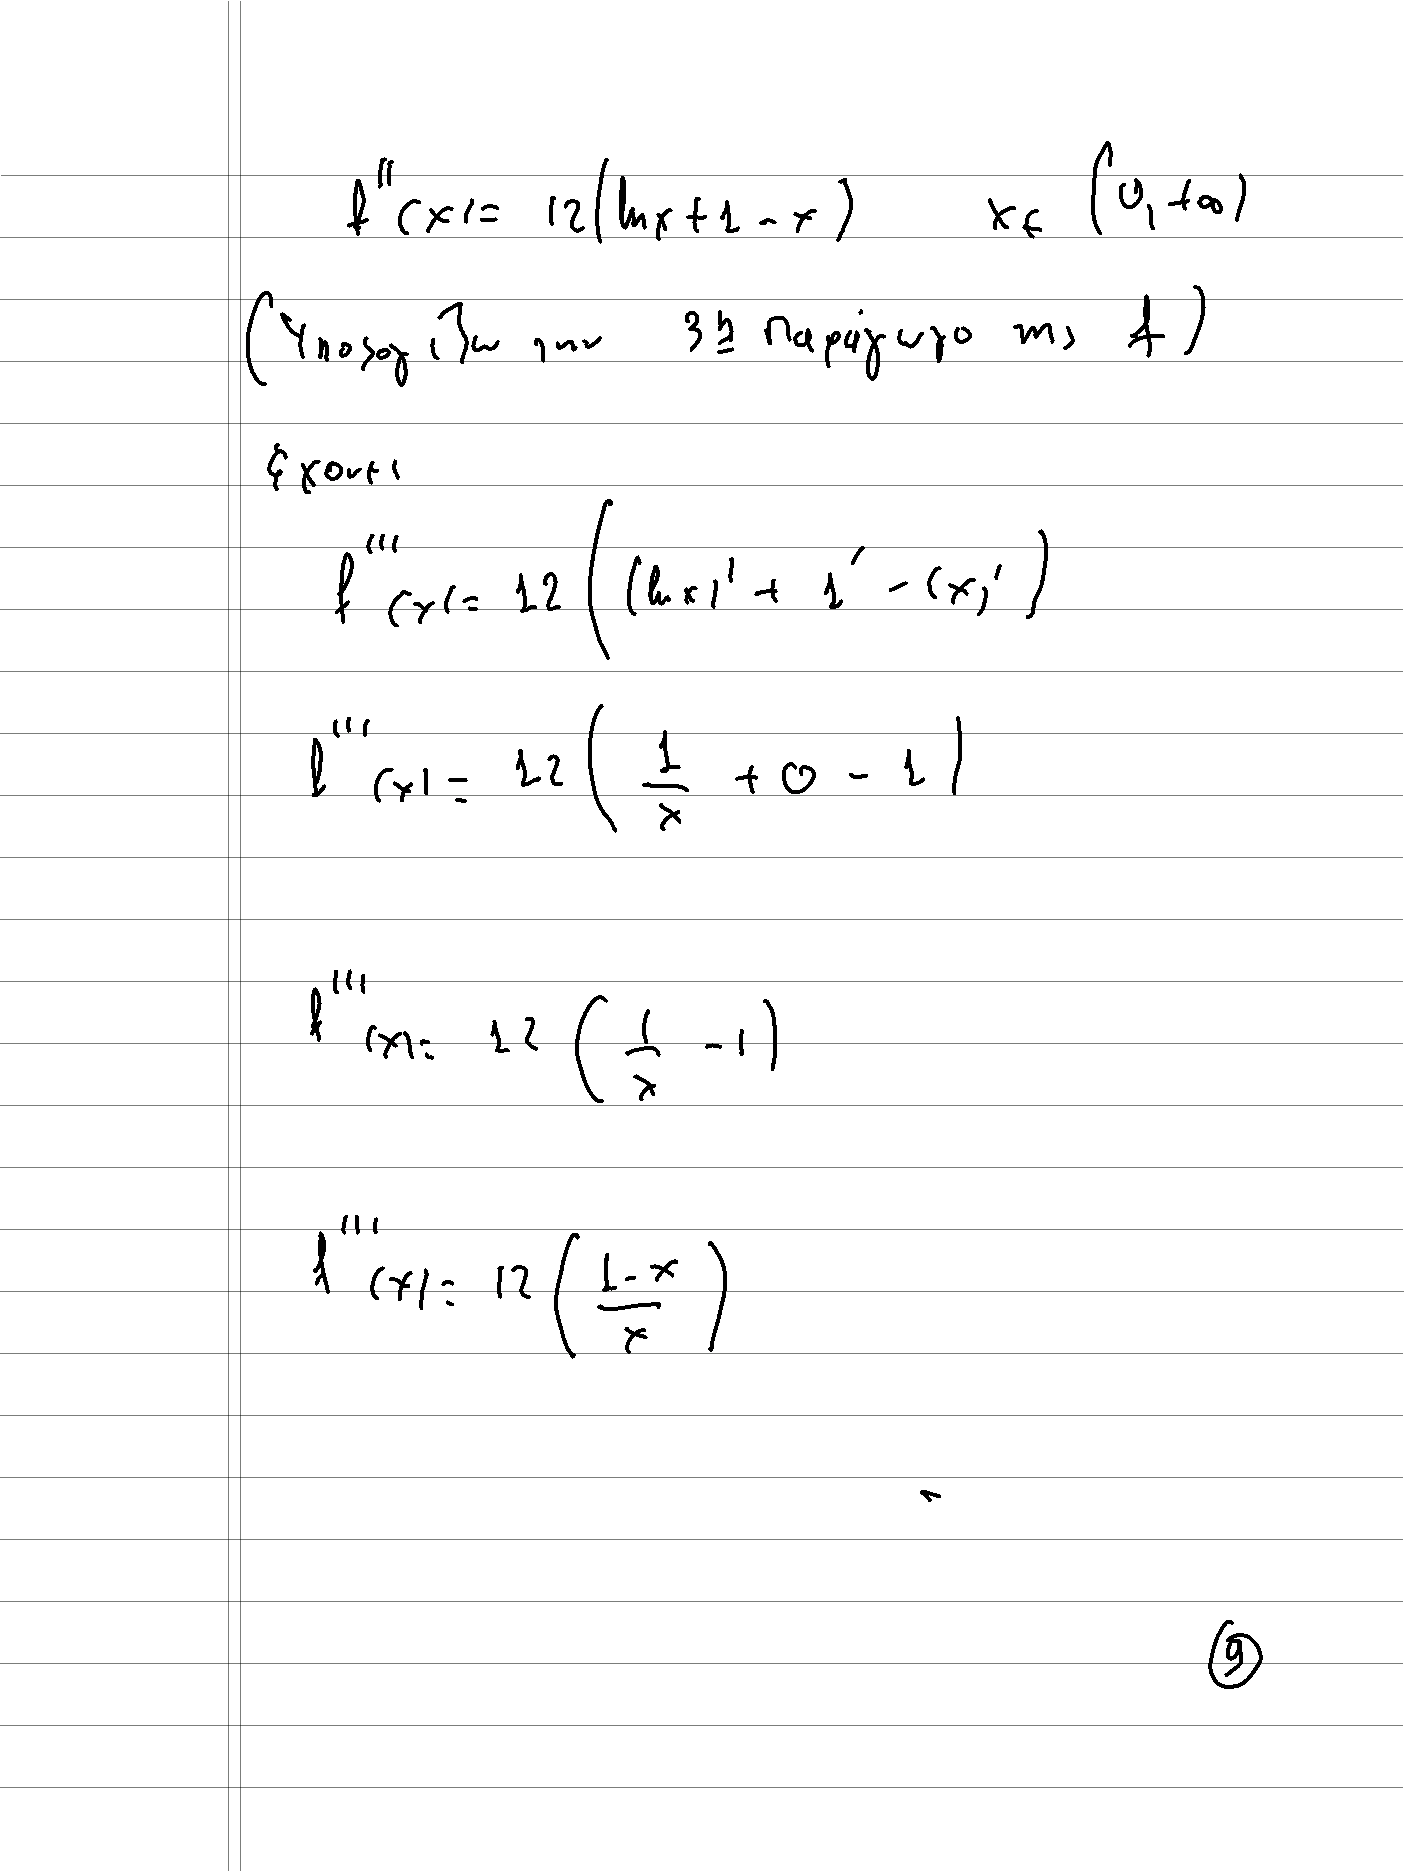 f''(x) = 12(lnx + 1 - x) x ∈ (0, +∞)
(Υπολογίζω την 3η Παράγωγο της f)
έχουμε
f'''(x) = 12((lnx)' + 1' - (x)')
f'''(x) = 12(1/x + 0 - 1)
f'''(x) = 12(1/x - 1)
f'''(x) = 12((1-x)/x)
9